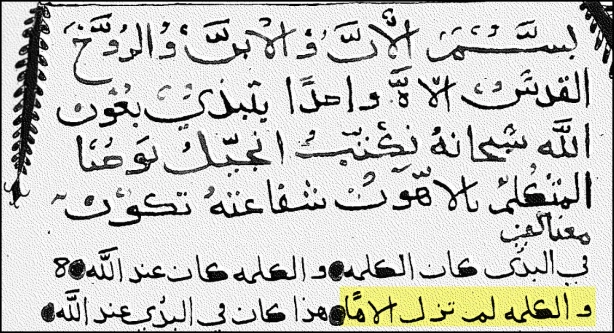 بسم الاب والابن والروح
القدس الاه واحدًا يتبدي بعون
الله سبحانه نكتب انجيل يوحنا
المتكلم بالاهوت شفاعته تكون
معنا امين
في البدي كان الكلمه و الكلمه كان عند الله
و الكلمه لم تزل الاهًا هذا كان في البدي عند الله